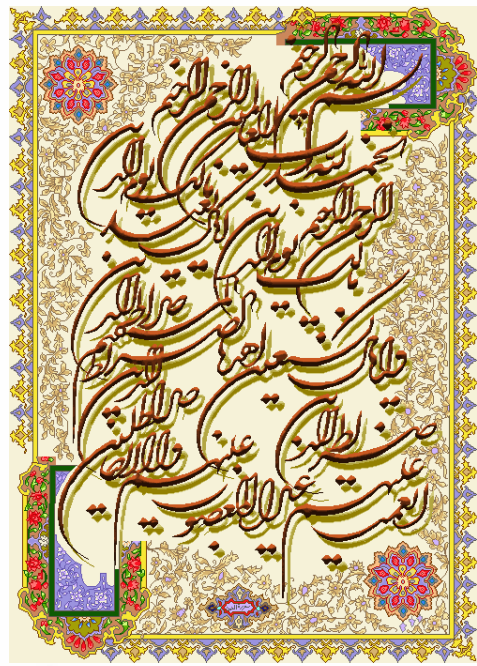 بسم الله الرحمن الرحیم
الحمد لله رب العالمین الرحمن الرحیم
مالک یوم الدین
الرحمن الرحیم مالک یوم الدین ایاک نعبد
و ایاک نستعین اهدنا الصراط المستقیم صراط الذین
صراط الذین
انعمت علیهم غیر المغضوب علیهم ولا الضالین